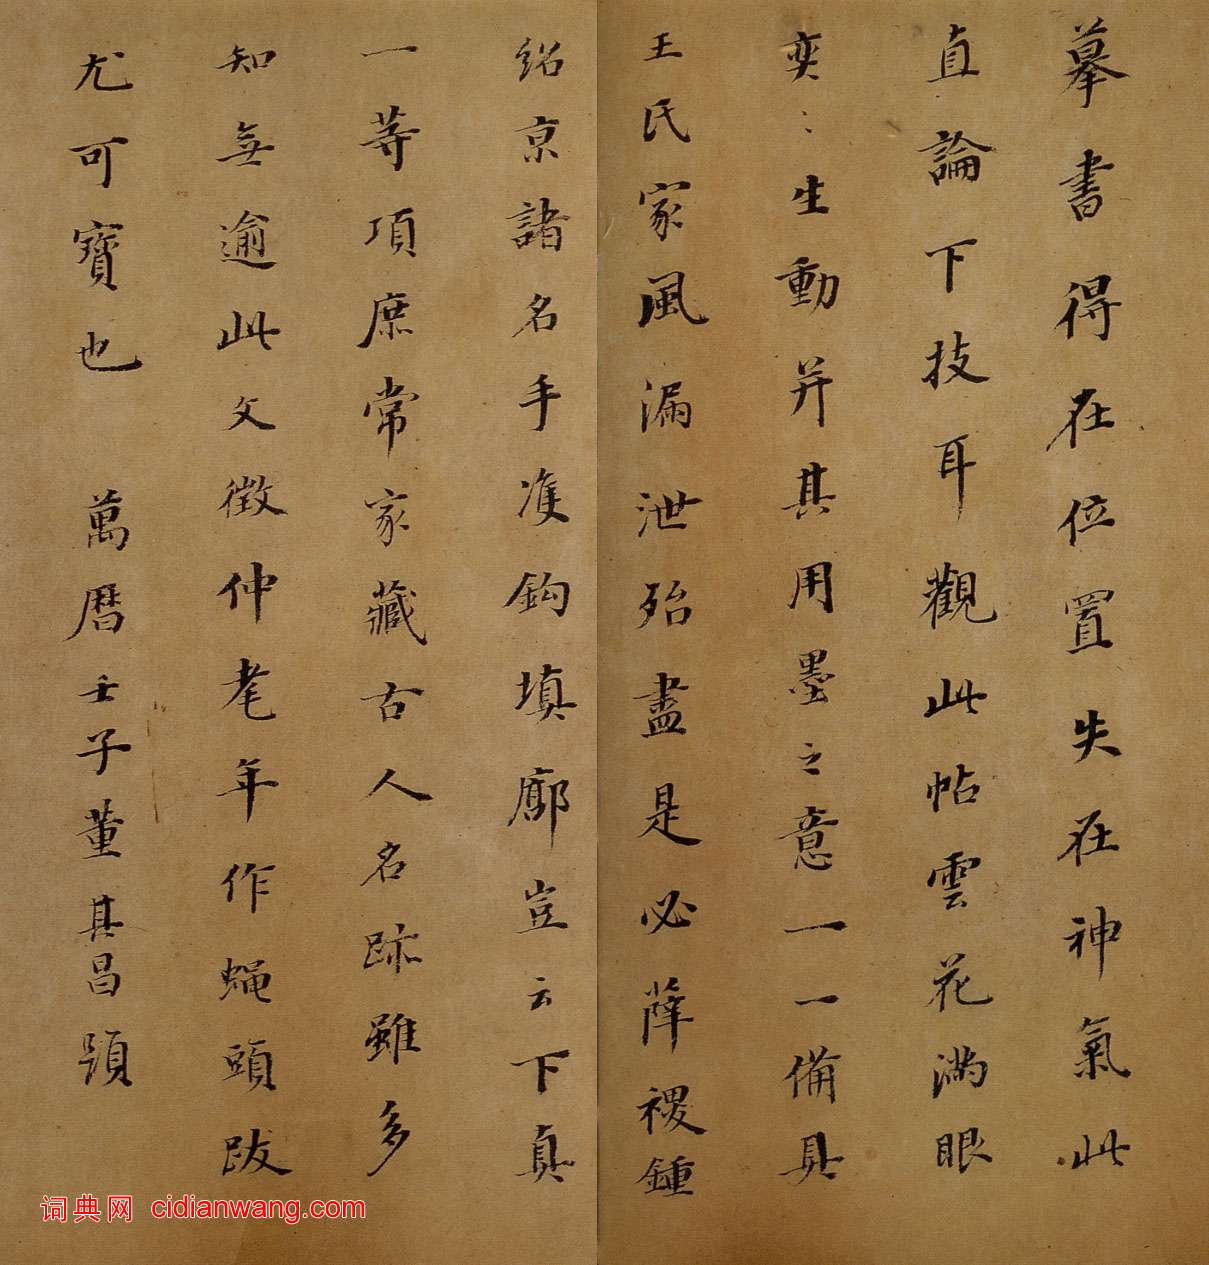 摹書得在位置失在神氣此
直論下技耳觀此帖雲花滿眼
奕〻生動并其用墨之意一一備具
王氏家風漏泄殆盡是必薛稷鍾
紹京諸名手准鈎填廓豈云下真
一等項庶常家藏古人名跡雖多
知無逾此文徵仲耄年作蝇頭跋
尤可寶也 萬曆壬子董其昌題
词典网 cidianwang.com